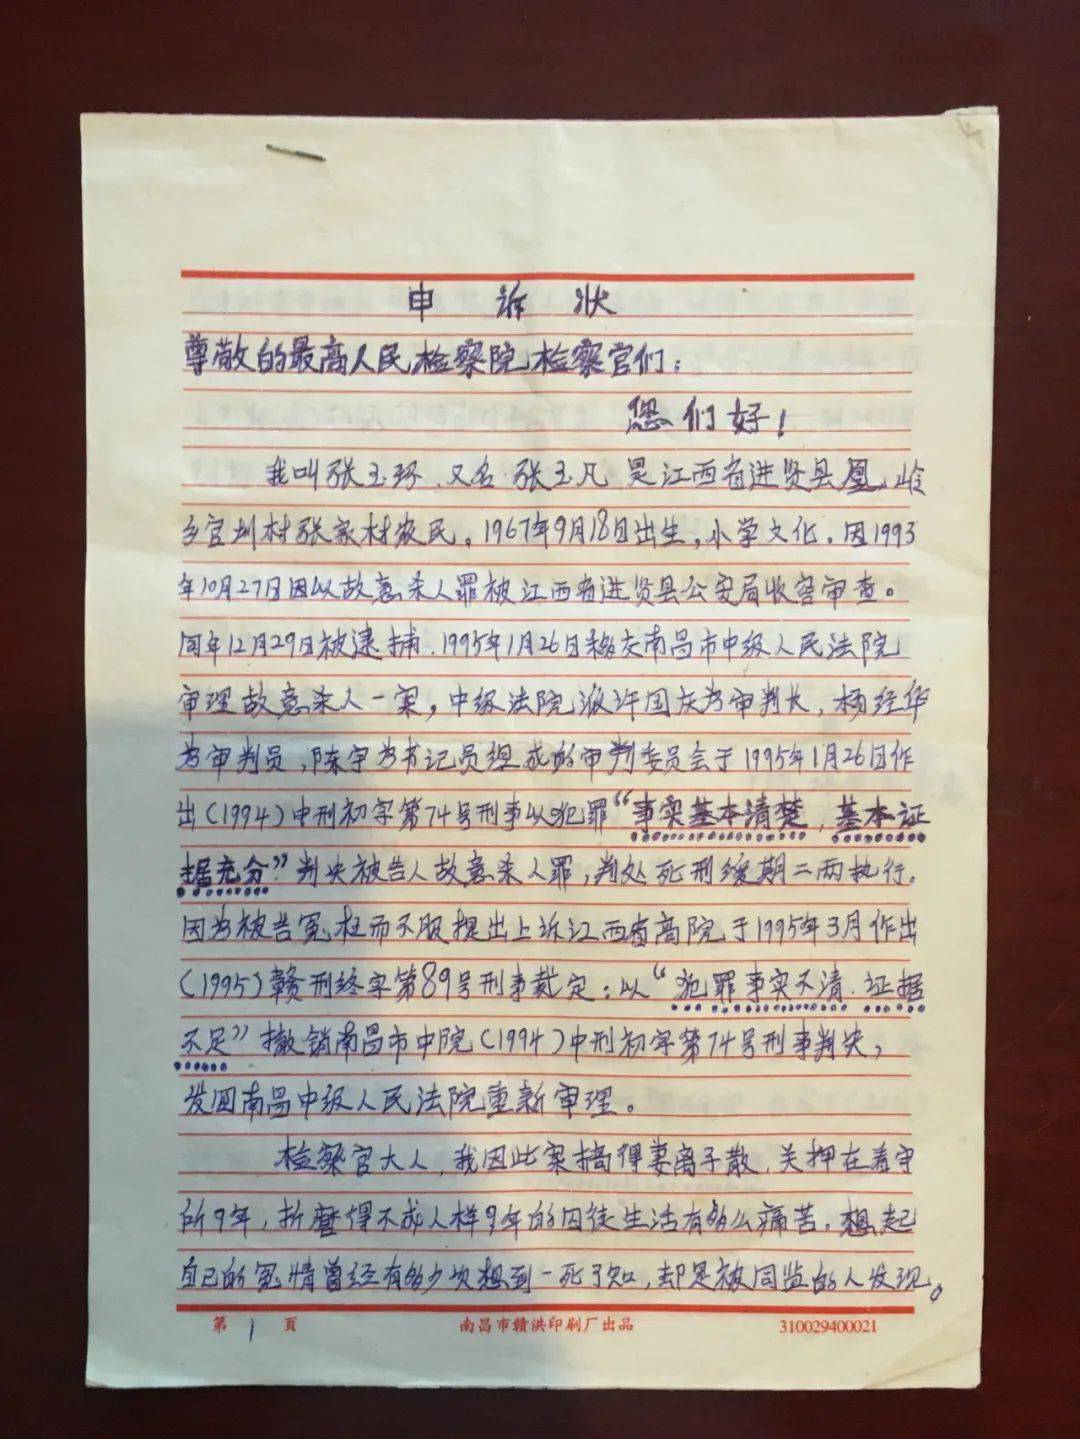 申诉状
尊敬的最高人民检察院检察官们：
您们好！
我叫张玉环、又名张玉凡是江西省进贤县凰岭
乡官圳村张家村农民。1967年9月18日出生，小学文化。因1993
年10月27日因以故意杀人罪被江西省进贤县公安局收容审查。
同年12月29日被逮捕、1995年1月26日移交南昌市中级人民法院
审理故意杀人一案，中级法院派许国庆为审判长，杨经华
为审判员，陈宇为书记员组成的审判委员会于1995年1月26日作
出（1994）中刑初字第74号刑事以犯罪“事实基本清楚，基本证
据充分”判决被告人故意杀人罪，判处死刑缓期二两执行。
因为被告冤枉而不服提出上诉江西省高院于1995年3月作出
（1995）赣刑终字第89号刑事裁定：以“犯罪事实不清、证据
不足”撤销南昌市中院（1994）中刑初字第74号刑事判决，
发回南昌中级人民法院重新审理。
检察官大人，我因此案搞得妻离子散、关押在看守
所9年，折磨得不成人样9年的囚徒生活有多么痛苦。想起
自己的冤情曾经有多少次想到一死了知，却是被同监的人发现。
第1页 南昌市赣洪印刷厂出品 310029400021